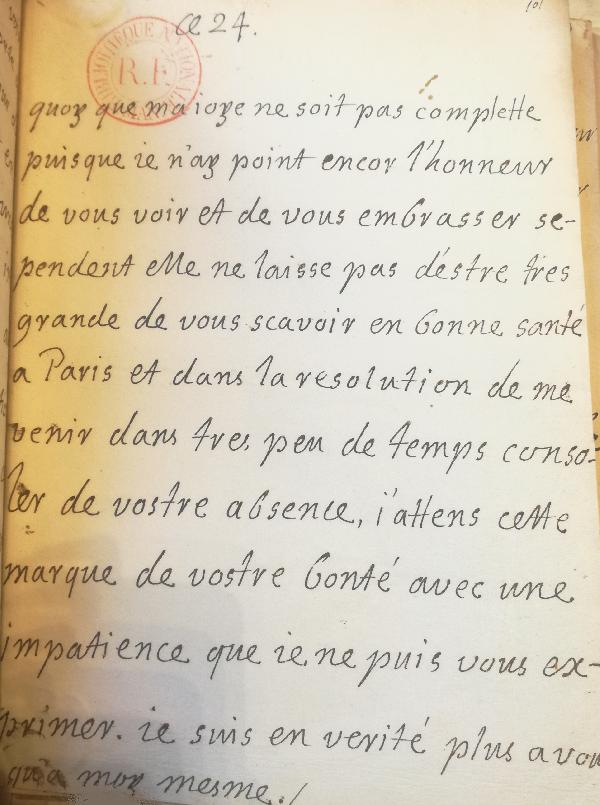 ce 24.
101
BIBLIOTHEQUE NATIONALE
R.F.
quoy que ma ioye ne soit pas complette
puisque ie n'ay point encor l'honneur
de vous voir et de vous embrasser se-
pendent elle ne laisse pas d'estre tres
grande de vous scavoir en bonne santé
a Paris et dans la resolution de me
venir dans tres peu de temps conso-
ler de vostre absence, i'attens cette
marque de vostre bonté avec une
impatience que ie ne puis vous ex-
primer. ie suis en verité plus a vou
qu'a moy mesme./